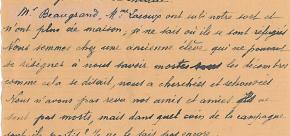 Mr Beaugrand, Mr Lesoux ont subi notre sort et
n'ont plus de maison, je ne sais où ils se sont réfugiés
Nous sommes chez une ancienne élève, qui ne pouvant
se résigner à nous savoir mortes sous les décombres
comme cela se disait, nous a cherchées et retrouvées
Nous n'avons pas revu nos amis et amies, ils ne
sont pas morts, mais dans quel coin de la campagne
sont-ils partis ? Je ne le sais pas encore